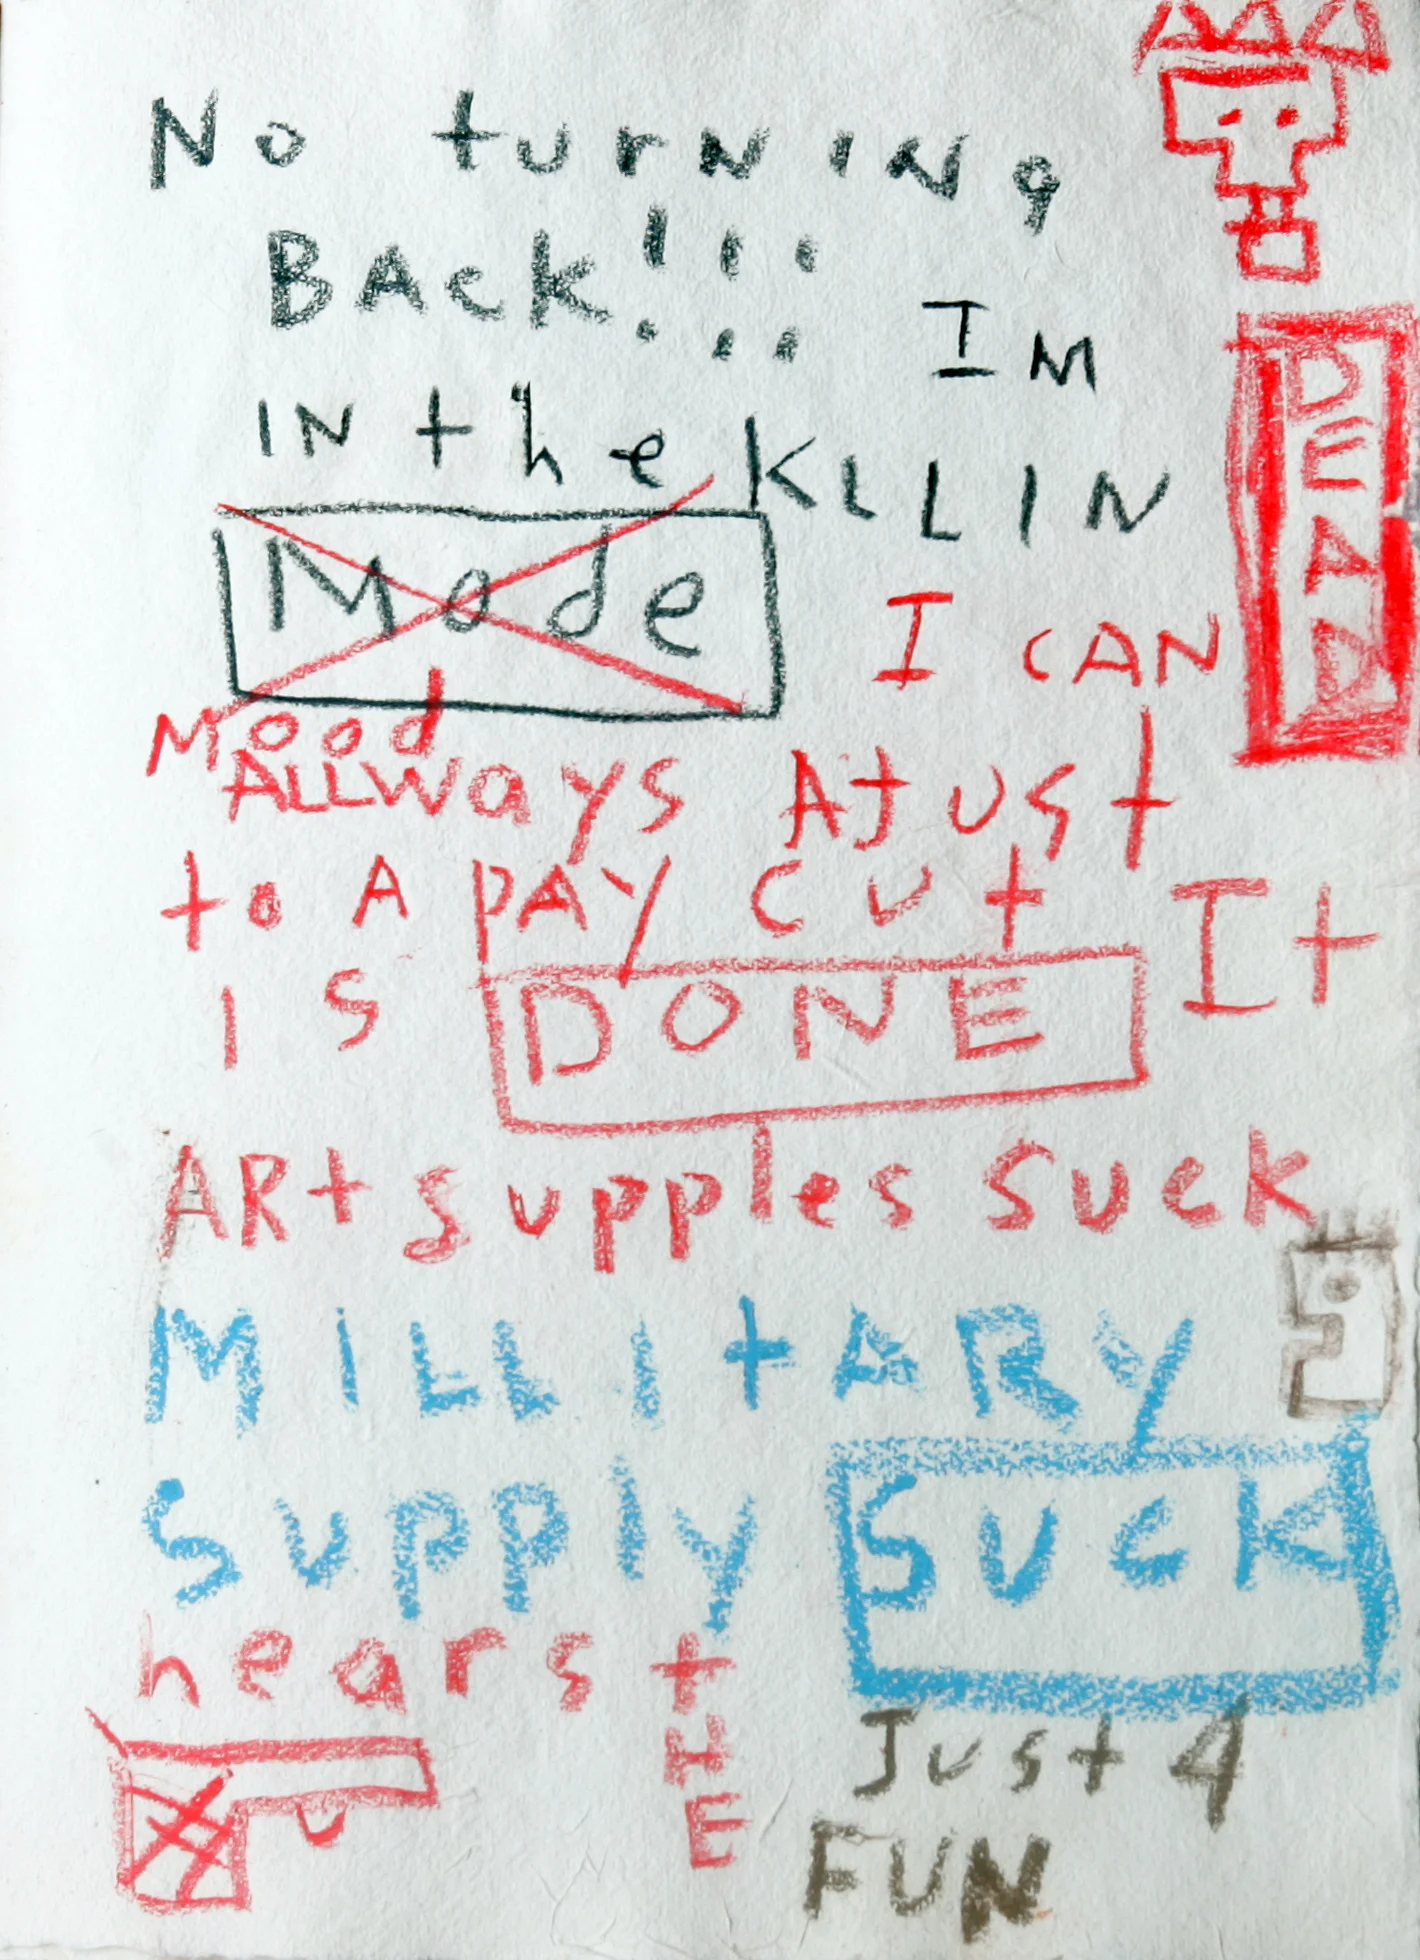 No turning
BAck!!! IM
IN the KLLIN
Mode
I CAN
Mood
ALLways AJust
to A PAY Cut It
IS DONE
ARt supples suck
MILLItARY
Supply SUCK
hears tHE
Just 4
FUN
DEAN